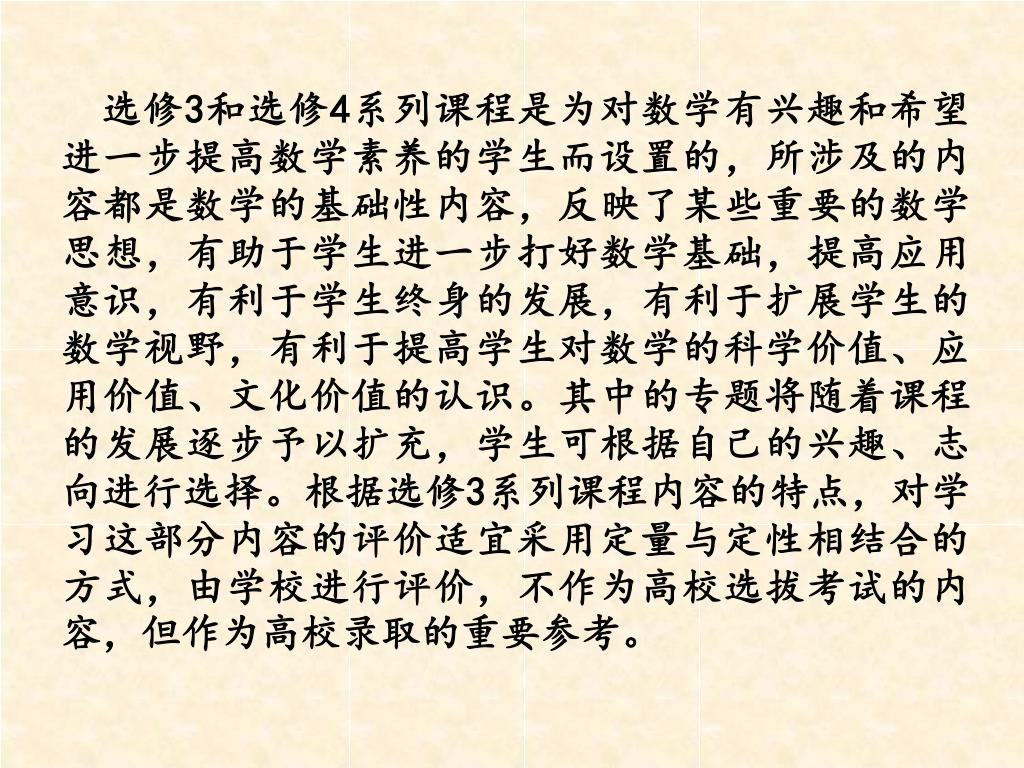 选修3和选修4系列课程是为对数学有兴趣和希望
进一步提高数学素养的学生而设置的，所涉及的内
容都是数学的基础性内容，反映了某些重要的数学
思想，有助于学生进一步打好数学基础，提高应用
意识，有利于学生终身的发展，有利于扩展学生的
数学视野，有利于提高学生对数学的科学价值、应
用价值、文化价值的认识。其中的专题将随着课程
的发展逐步予以扩充，学生可根据自己的兴趣、志
向进行选择。根据选修3系列课程内容的特点，对学
习这部分内容的评价适宜采用定量与定性相结合的
方式，由学校进行评价，不作为高校选拔考试的内
容，但作为高校录取的重要参考。